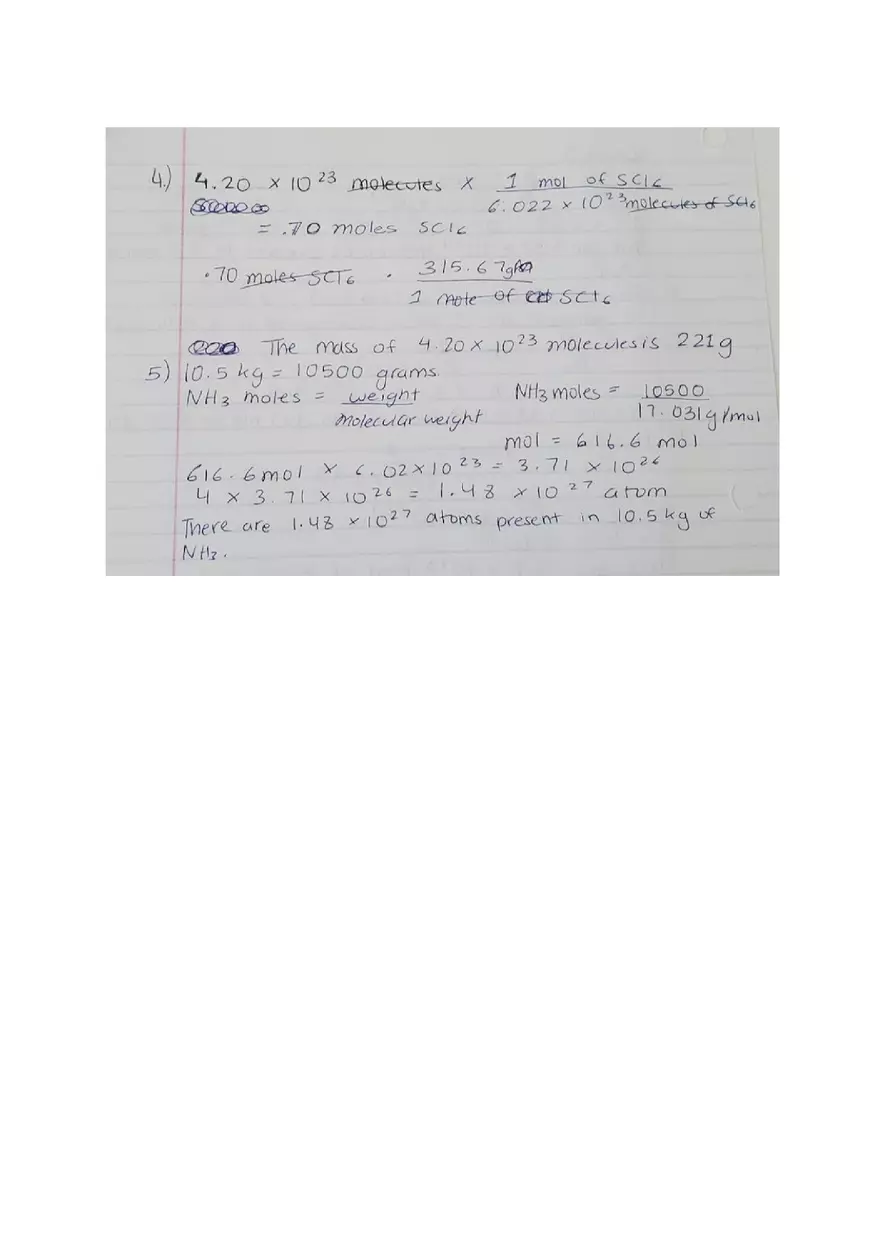 4.) 4.20 × 10²³ molecules × 1 mol of SCl₆
6.022 × 10²³ molecules of SCl₆
= .70 moles SCl₆
.70 moles SCl₆ · 315.67g
1 mole of SCl₆
The mass of 4.20 × 10²³ molecules is 221g
5) 10.5 kg = 10500 grams.
NH₃ moles = weight NH₃ moles = 10500
molecular weight 17.031g/mol
mol = 616.6 mol
616.6 mol × 6.02 × 10²³ = 3.71 × 10²⁶
4 × 3.71 × 10²⁶ = 1.48 × 10²⁷ atom
There are 1.48 × 10²⁷ atoms present in 10.5 kg of
NH₃.